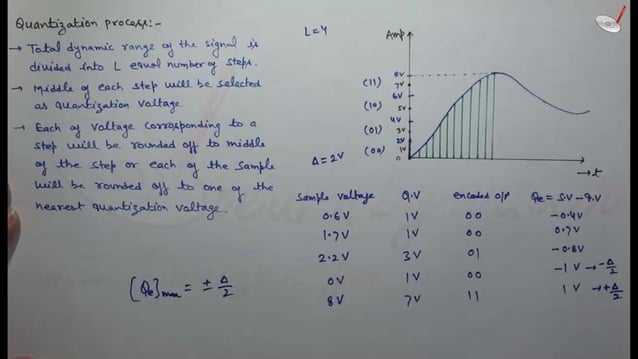 Quantization process:-
→ Total dynamic range of the signal is
divided into L equal number of steps.
→ Middle of each step will be selected
as quantization voltage
→ Each of voltage corresponding to a
step will be rounded off to middle
of the step or each of the sample
will be rounded off to one of the
nearest quantization voltage.
[Qe]max = ± Δ/2
L=4
Δ=2V
Amp
8V
7V
(11)
6V
5V
(10)
4V
3V
(01)
2V
1V
(00)
0
→ t
Sample voltage Q.V encoded O/P Qe = S.V - Q.V
0.6V 1V 00 -0.4V
1.7V 1V 00 0.7V
2.2V 3V 01 -0.8V
0V 1V 00 -1V → -Δ/2
8V 7V 11 1V → +Δ/2